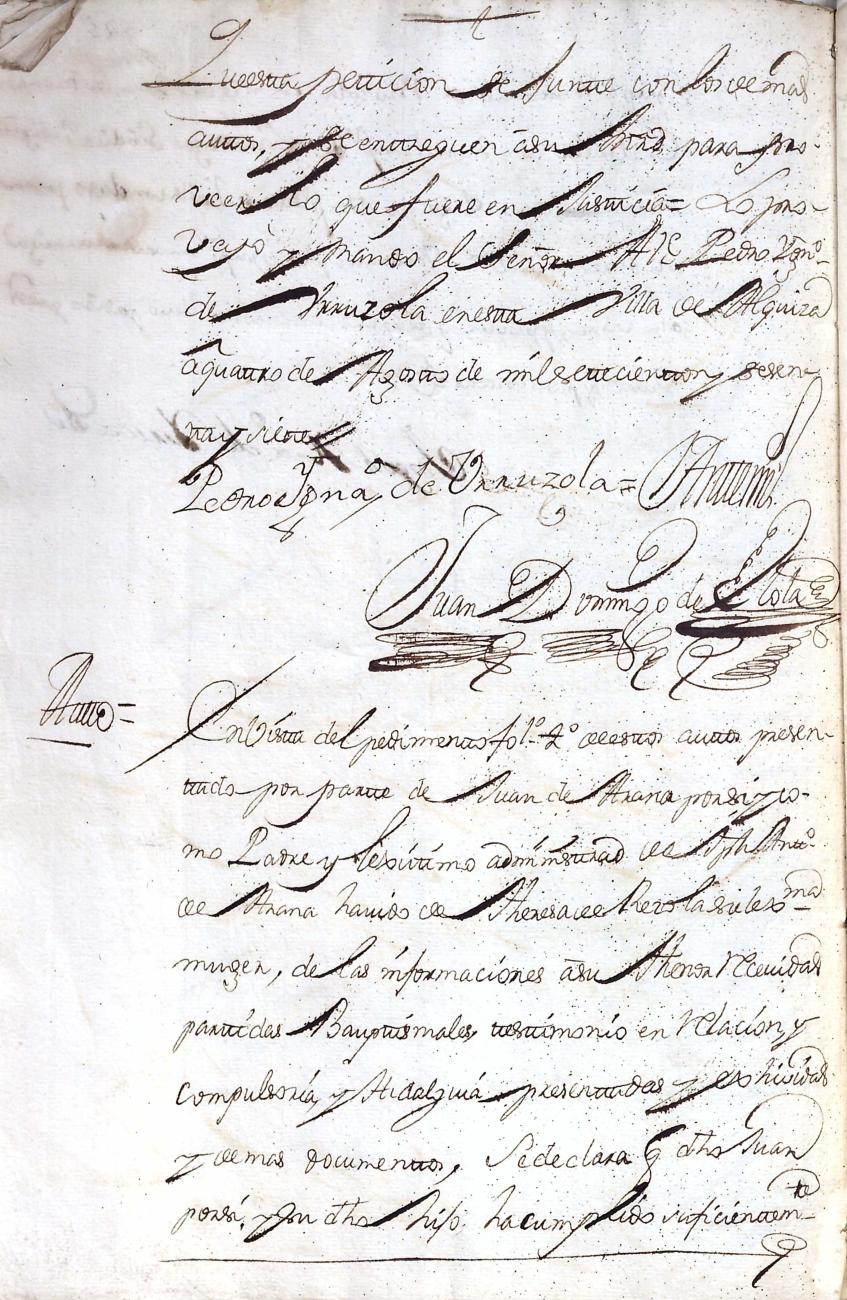 Queesta petticion se Juntte con los demas
auttos, y se entreguen âsu Mrd para pro-
veer lo que fuere en Justticia= Lo pro-
veyò y mando el Señor Alc. Pedro Ygn.º
de Urruzola enestta Villa de Alquiza
â quattro de Agosto de mil settecienttos y sesen-
tta y siette
Pedro Ygna.º de Urruzola = Anttemi
Juan Domingo de Elola
Autto=
En Vistta del pedimentto fol.º 4º deestos auttos presen-
ttado por partte de Juan de Arana porsi y co-
mo Padre y lexitimo administtrad.r de Jph Antt.º
de Arana havido de Theresa de Rezola su lexma
muger, de las informaciones âsu Thenor recevidas
parttidas Bauptismales, testtimonio en relacion, y
compulsoria, y Hidalguia presenttadas y exhividas
y demas documenttos, Sedeclara q dho Juan
porsi, y su dho hijo ha cumplido suficienttemte